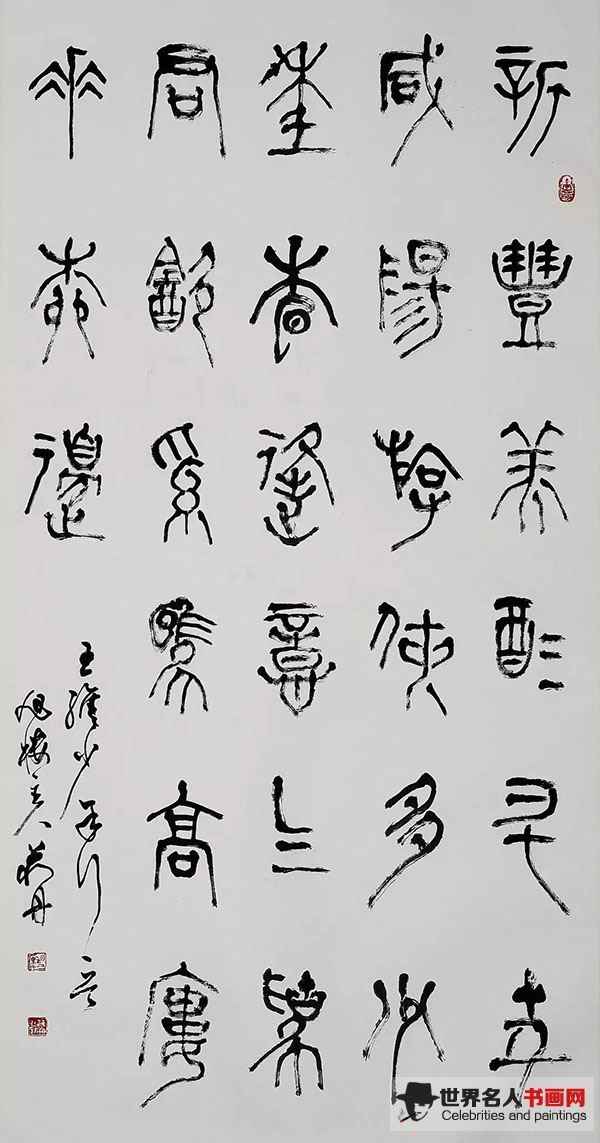 新豐美酒斗十千
咸陽游俠多少
年相逢意气為
君飲系馬高樓
垂柳邊
王維少年行
主人
世界名人书画网
Celebrities and paintings